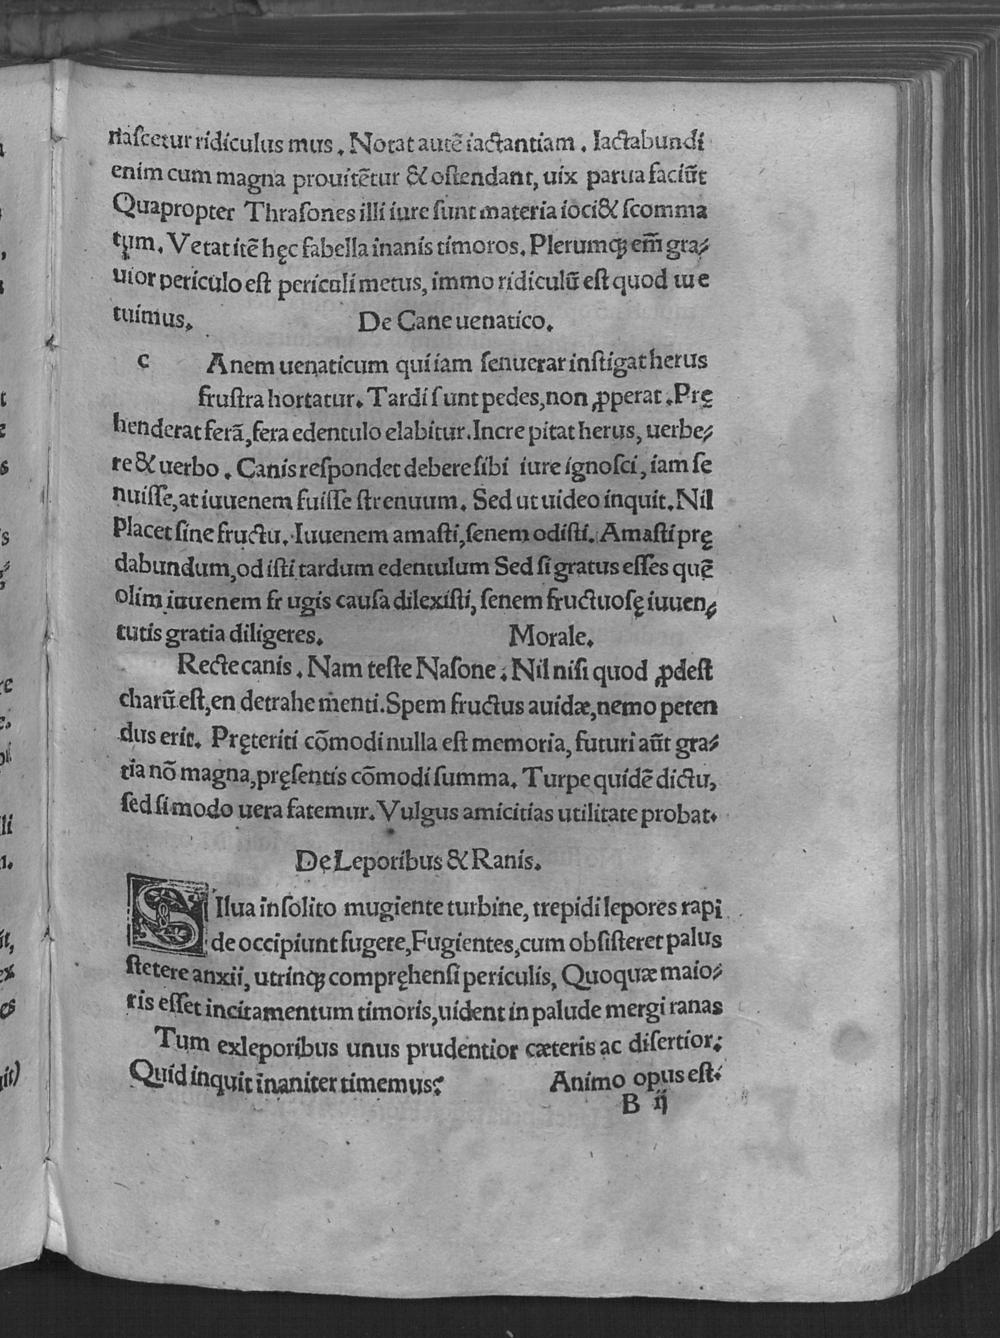 naſcetur ridiculus mus. Notat autē iactantiam. Iactabundi
enim cum magna prouitētur & oſtendant, uix parua faciūt
Quapropter Thraſones illi iure ſunt materia ioci& ſcomma
tųm. Vetat itē hęc fabella inanis timoros. Plerumq; em̄ gra⸗
uior periculo eſt periculi metus, immo ridiculū eſt quod me
tuimus. De Cane uenatico.
c Anem uenaticum qui iam ſenuerar inſtigat herus
fruſtra hortatur. Tardi ſunt pedes, non ꝓperat. Prę
henderat ferā, fera edentulo elabitur. Incre pitat herus, uerbe⸗
re & uerbo. Canis reſpondet debere ſibi iure ignoſci, iam ſe
nuiſſe, at iuuenem fuiſſe ſtrenuum. Sed ut uideo inquit. Nil
Placet ſine fructu. Iuuenem amaſti, ſenem odiſti. Amaſti prę
dabundum, od iſti tardum edentulum Sed ſi gratus eſſes quē
olim iuuenem fr ugis cauſa dilexiſti, ſenem fructuoſę iuuen⸗
tutis gratia diligeres. Morale.
Recte canis. Nam teſte Naſone. Nil niſi quod ꝓdeſt
charū eſt, en detrahe menti. Spem fructus auidæ, nemo peten
dus erit. Pręteriti cōmodi nulla eſt memoria, futuri aūt gra⸗
tia nō magna, pręſentis cōmodi ſumma. Turpe quidē dictu,
ſed ſi modo uera fatemur. Vulgus amicitias utilitate probat.
De Leporibus & Ranis.
SIlua inſolito mugiente turbine, trepidi lepores rapi
de occipiunt fugere, Fugientes, cum obſiſteret palus
ſtetere anxii, utrinq; compręhenſi periculis, Quoquæ maio⸗
ris eſſet incitamentum timoris, uident in palude mergi ranas
Tum exleporibus unus prudentior cæteris ac diſertior;
Quid inquit inaniter timemus? Animo opus eſt.
B ij